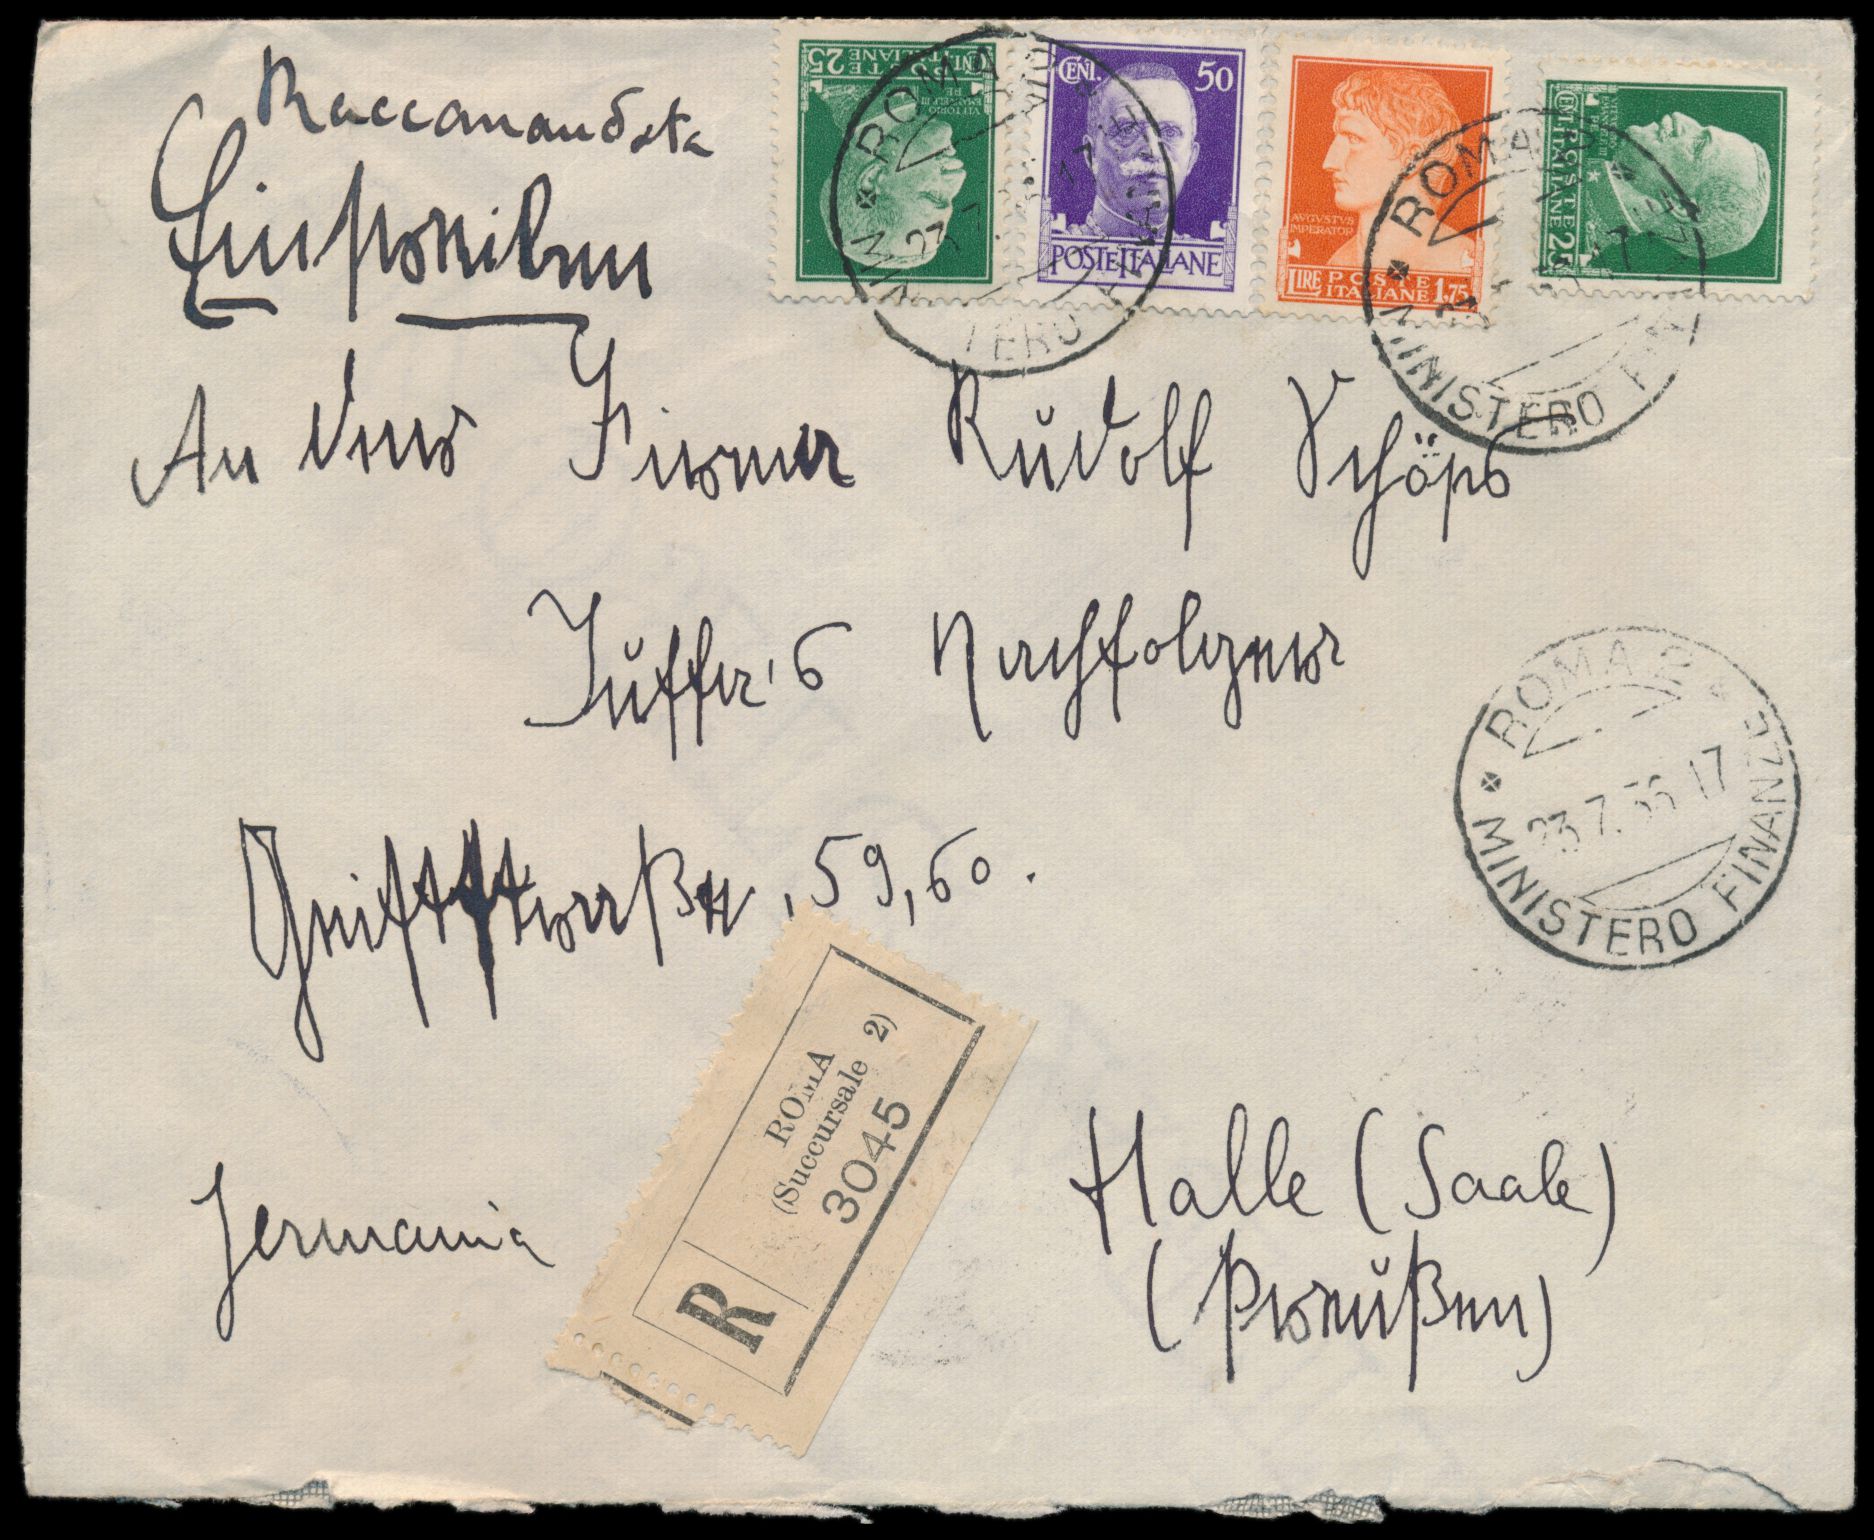 Raccomandata
Einschreiben
POSTE ITALIANE
CENT. 25
VITTORIO EMANUELE III RE
CENT. 50
POSTE ITALIANE
AVGVSTVS
IMPERATOR
LIRE POSTE ITALIANE 1,75
POSTE ITALIANE
CENT. 25
ROMA
MINISTERO
ROMA
MINISTERO FINANZE
An die Firma Rudolf Schöps
Nachfolger
59,60.
ROMA 2
23.7.36 17
MINISTERO FINANZE
R
ROMA
(Succursale 2)
3045
Germania
Halle (Saale)
(Preußen)